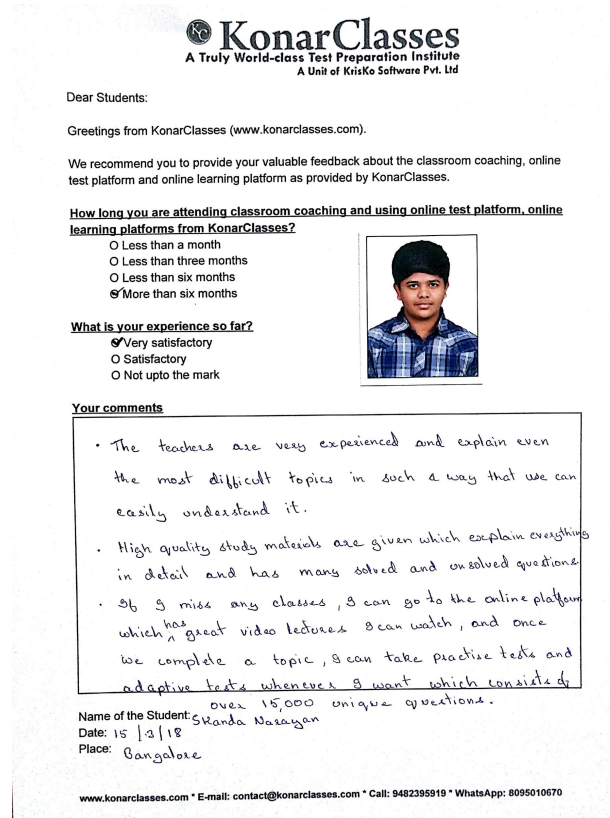 KC KonarClasses
A Truly World-class Test Preparation Institute
A Unit of KrisKo Software Pvt. Ltd
Dear Students:
Greetings from KonarClasses (www.konarclasses.com).
We recommend you to provide your valuable feedback about the classroom coaching, online
test platform and online learning platform as provided by KonarClasses.
How long you are attending classroom coaching and using online test platform, online
learning platforms from KonarClasses?
O Less than a month
O Less than three months
O Less than six months
O More than six months
What is your experience so far?
O Very satisfactory
O Satisfactory
O Not upto the mark
Your comments
• The teachers are very experienced and explain even
the most difficult topics in such a way that we can
easily understand it.
• High quality study materials are given which explain everything
in detail and has many solved and unsolved questions
• If I miss any classes, I can go to the online platform
which has great video lectures I can watch, and once
we complete a topic, I can take practise tests and
adaptive tests whenever I want which consists of
over 15,000 unique questions.
Name of the Student: Skanda Narayan
Date: 15/3/18
Place: Bangalore
www.konarclasses.com * E-mail: contact@konarclasses.com * Call: 9482395919 * WhatsApp: 8095010670